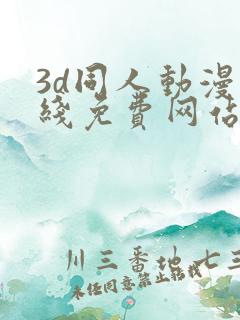 3d同人動漫
綫免費网佔
川三番地七三
未经同意禁止转载